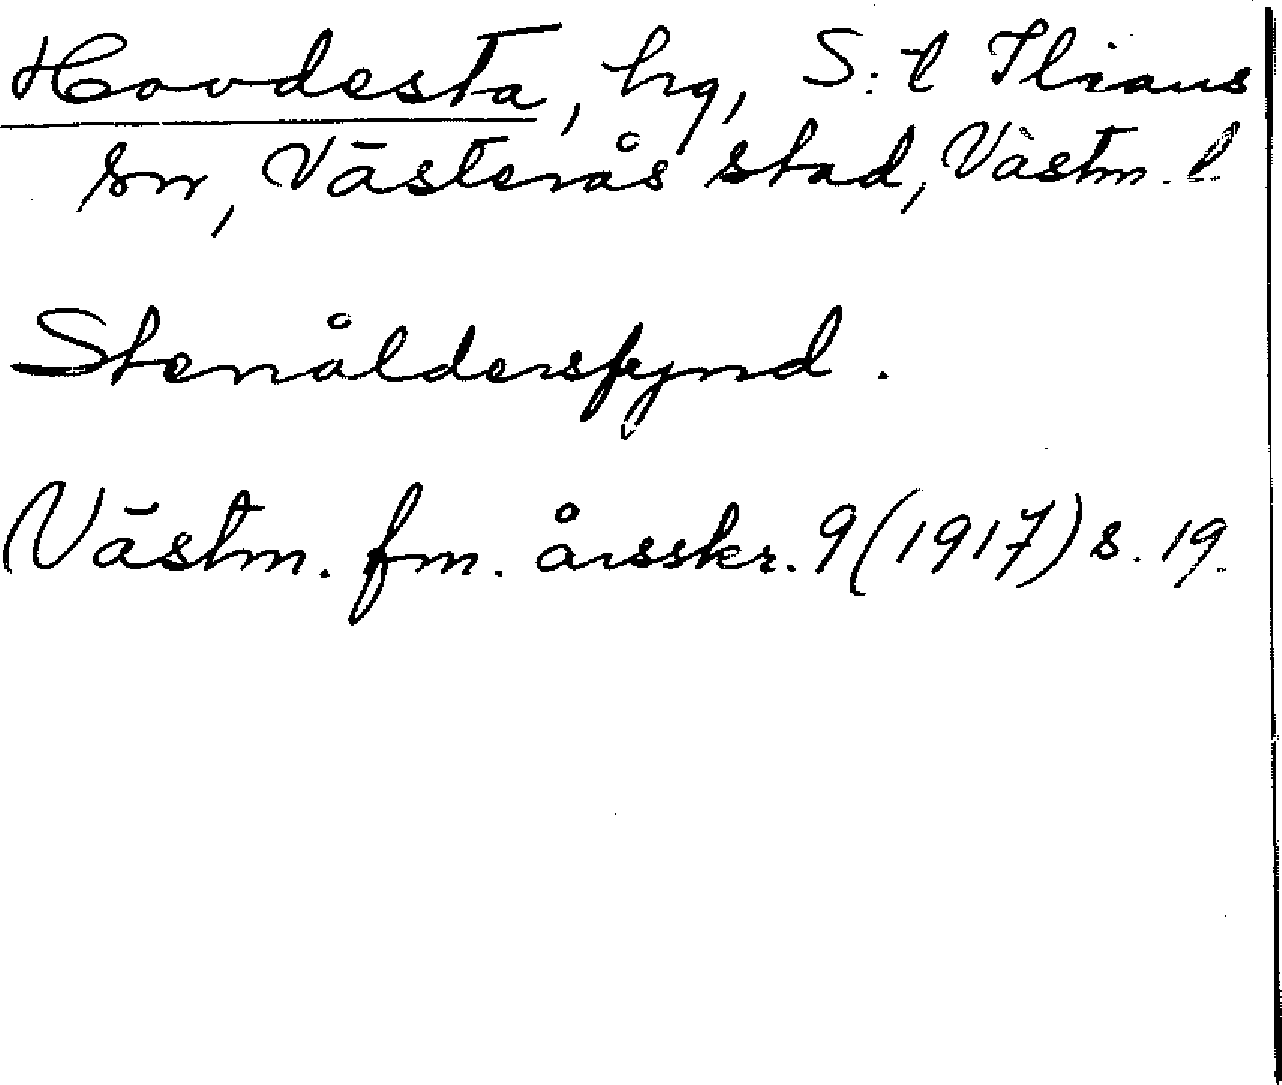 Hovdesta, hg, S:t Ilians
sn, Västerås stad, Västm. l.
Stenåldersfynd.
Västm. fm. årsskr. 9 (1917) s. 19.